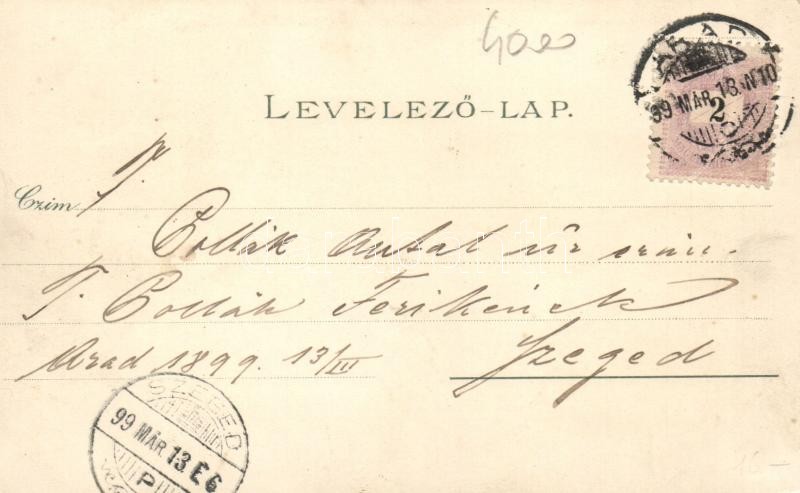 4000
ARAD
99 MÁR. 13. N10
2
LEVELEZŐ-LAP.
Czim T.
Pollák Antal úr
T. Pollák Ferikének
Arad 1899. 13/III Szeged
SZEGED
99 MÁR. 13. E6
P
16-